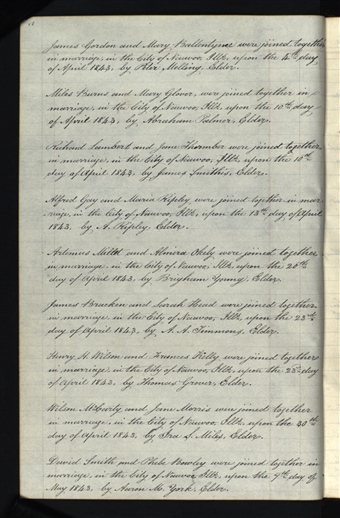 James Gordon and Mary Ballentyne were joined together
in marriage, in the City of Nauvoo, Ills, upon the 4th day
of April 1843, by Peter Melling, Elder.
Miles Burns and Mary Glover, were joined together in
marriage, in the City of Nauvoo, Ills, upon the 10th day
of April 1843, by Abraham Palmer, Elder.
Richard Lambert and Jane Thornber were joined together,
in marriage, in the City of Nauvoo, Ills, upon the 10th
day of April 1843, by James Smithis, Elder.
Alfred Gay and Maria Ripley, were joined together in mar-
riage, in the City of Nauvoo, Ills, upon the 13th day of April
1843, by A. Ripley, Elder.
and Almira were joined together
in marriage, in the City of Nauvoo, Ills, upon the 20th
day of April 1843, by Brigham Young, Elder.
James Bracken and Sarah Head were joined together
in marriage, in the City of Nauvoo, Ills, upon the 23rd
day of April 1843, by A. A. Timmons, Elder.
Henry H. Wilson and Frances Kelly were joined together
in marriage, in the City of Nauvoo, Ills, upon the day
of April 1843, by Thomas Grover, Elder.
Wilson and Jane Morris were joined together
in marriage, in the City of Nauvoo, Ills, upon the 30th
day of April 1843, by Ira S. Miles, Elder.
David Smith and Phebe Bowley were joined together in
marriage, in the City of Nauvoo, Ills, upon the 7th day of
May 1843, by Aaron M. York, Elder.